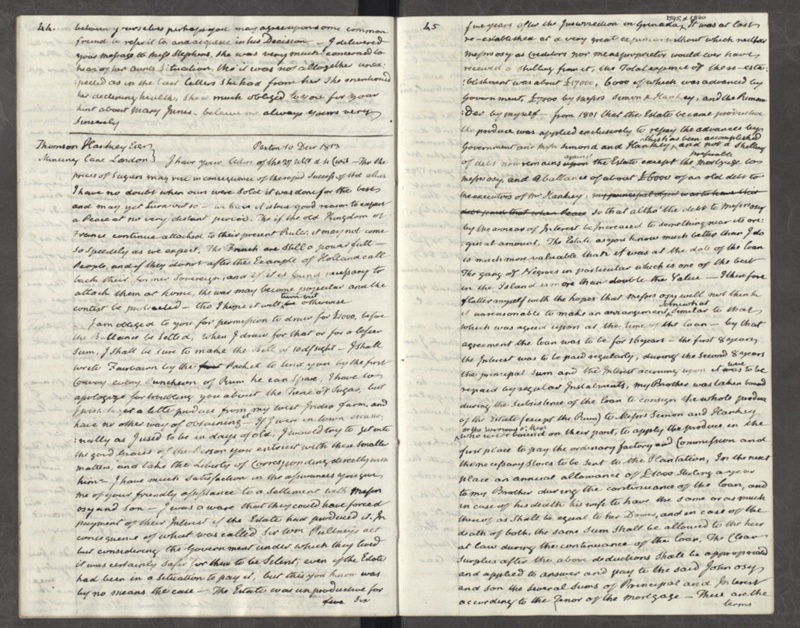 44.
between yourselves perhaps you may agree upon some common
friend to refer it to and acquiesce in his Decision — I delivered
your message to Miss Stephens, she was very much concerned to
hear of her Aunts Situation, tho it was not altogether unex-
pected as in the last letters she had from her She mentioned
her declining health, She is much obliged to you for your
hint about Mary Jones — believe me always yours very
Sincerely
Thomson Hankey Esqr
Mincing Lane London
Paxton 10 Decr 1813
I have your letter of the — tho the
prices of Sugars may rise in consequence of the rapid Success of the allies
I have no doubt when ours were Sold it was done for the best
and may yet turn out so — we have it is true good reason to expect
a Peace at no very distant period. Tho if the old Kingdom of
France continue attached to their present Ruler it may not come
so Speedily as we expect. The French are still a powerfull
People, and if they do not after the Example of Holland call
back their former Sovereign, and if it is found necessary to
attack them at home, the war may become popular and the
contest be protracted — tho I hope it will turn out otherwise
I am obliged to you for permission to draw for £1000, before
the Ballance be Settled, When I draw for that or for a lesser
Sum, I shall be sure to make the Bill at 10 d/sight — I shall
write Fairbairn by the first Packet to send you by the first
Convoy every Puncheon of Rum he can Spare, I have to
apologize for troubling you about the Tence of Sugar, but
I wish to get a little produce from my West India farm, and
have no other way of obtaining it If I were in town occasi-
onally as I used to be in days of old, I would try to get into
the good Graces of the Person you entrust with these Smaller
matters, and take the liberty of Corresponding directly with
him — I have much satisfaction in the assurances you give
me of your friendly assistance to a Settlement with Messrs
Osy and Son — I was aware that they could have forced
payment of their Interest if the Estate had produced it. In
consequence of what was called Sir Wm Pulteneys act
but considering the Government under which they lived
it was certainly safer for them to be Silent, even if the Estate
had been in a Situation to pay it, but this you know was
by no means the case — The Estate was unproductive for
five Six
45
five years after the Insurrection in Grenada, It was at last
re-established at a very great expence without which neither
Messrs Osy as Creditors nor me as proprietor would ever have
received a Shilling from it, the Total expence of the re-esta-
blishment was about £17000, 6000 of which was advanced by
Government, £7500 by Messrs Simon & Hankey, and the Remain-
der by myself — from 1801 that the Estate became productive
the produce was applied exclusively to repay the advances by
Government and Messrs Simond and Hankey, this has been accomplished and not a shilling
of debt now remains against the Estate except the mortgage to
Messrs Osy, and a ballance of about £6000 of an old debt to
the executors of Mr Hankey. so that altho the debt to Messrs Osy
by the arrear of Interest be Increased to something near its ori-
ginal amount, The Estate as you know much better than I do
is much more valuable than it was at the date of the loan
The gang of Negroes in particular which is one of the best
in the Island is more than double the Value — I therefore
flatter myself with the hopes that Messrs Osy will not think
it unreasonable to make an arrangement, Somewhat Similar to that
which was agreed upon at the time of the loan — by that
agreement the loan was to be for 16 years — the first 8 years
the Interest was to be paid regularly, during the Second 8 years
the principal Sum and the Interest accruing upon it was to be
repaid by regular Instalments, my Brother was taken bound
during the Subsistence of the loan to consign the whole produce
of the Estate (except the Rum) to Messrs Simon and Hankey
who were bound on their part, to apply the produce in the
first place to pay the ordinary factory and Commission and
the necessary Stores to be Sent to the Plantation, In the next
place an annual allowance of £1000 Sterling a year
to my Brother during the continuance of the loan, and
in case of his death his wife to have the same or as much
thereof as Shall be equal to her Dower, and in case of the
death of both the same Sum Shall be allowed to the heir
at law during the continuance of the loan, The Clear
Surplus after the above deductions Shall be appropriated
and applied to answer and pay to the said John Osy
and Son the Several Sums of Principal and Interest
according to the Tenor of the mortgage — These are the
terms